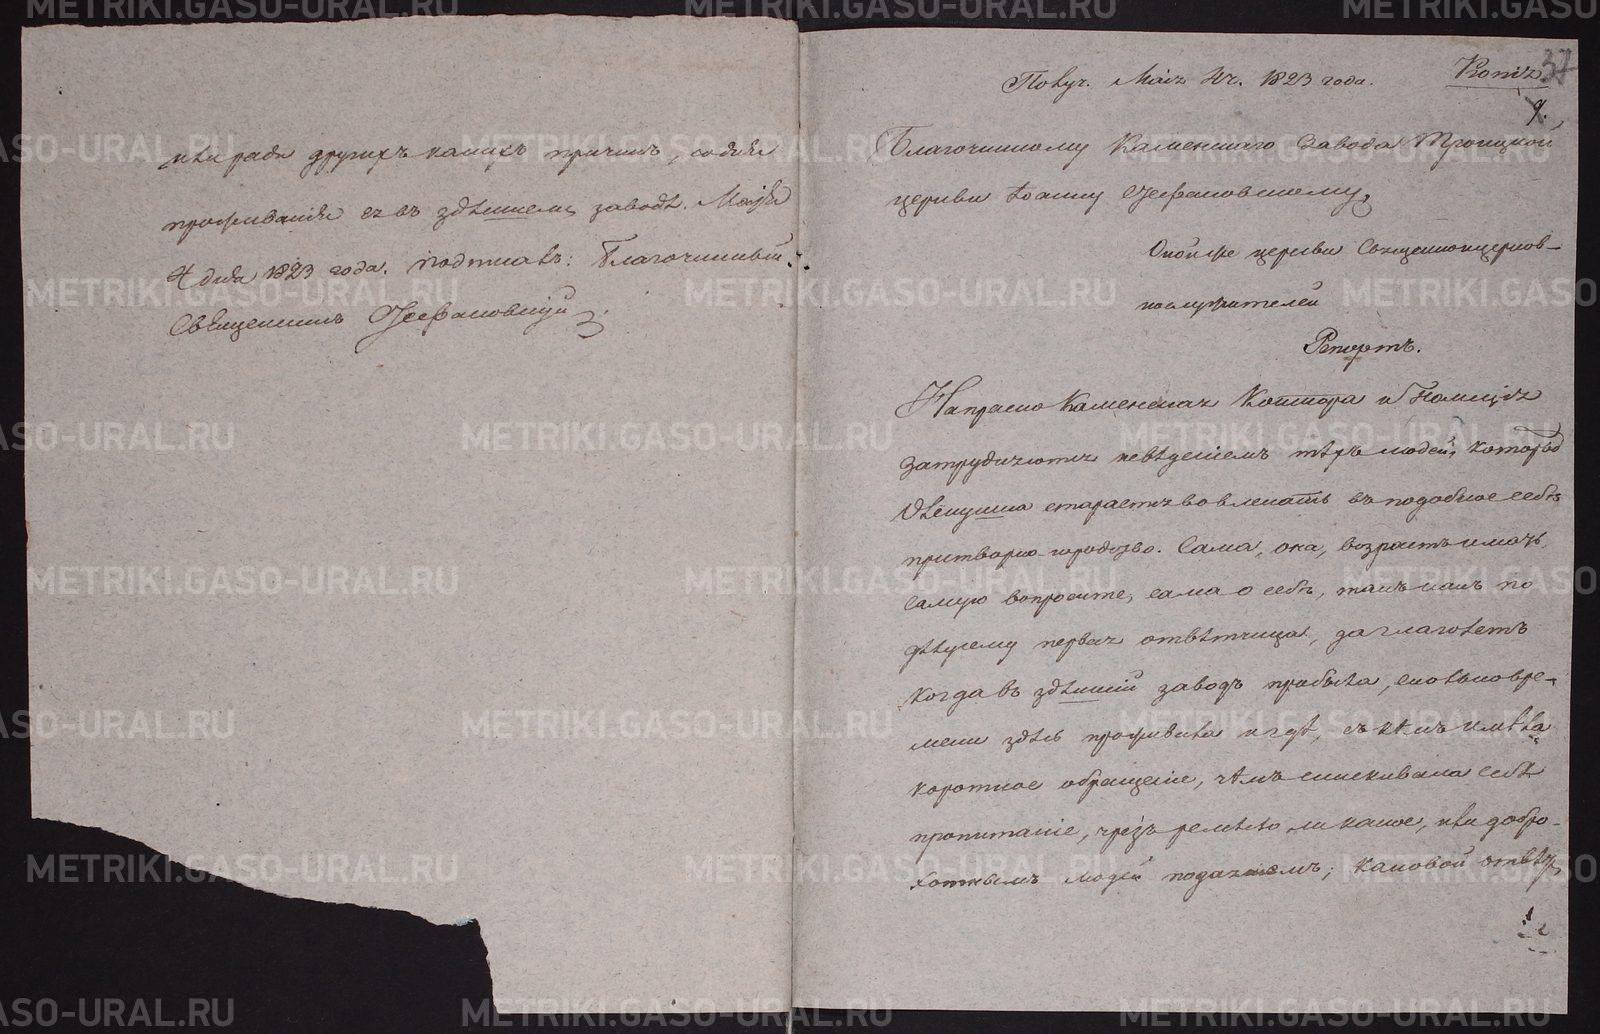 или ради другихъ какихъ причинъ, содня
проживанія ея въ здѣшнемъ заводѣ. Майя
4 дня 1823 года. подписалъ: Благочинный
Священникъ Стефановскій
Получ. Маія 4 ч. 1823 года.
Копія
37
9.
Благочинному Каменскаго Завода Троицкой
церкви Іоанну Стефановскому,
Оной же церкви Священноцерков-
нослужителей
Репортъ.
Напрасно Каменская Контора и Полиція
затрудняются невѣденіемъ тѣхъ людей, которыхъ
дѣвушка старается вовлекать въ подобное себѣ
притворно-юродство. Сама, она, возрастъ имѣя,
самую вопросите, сама о себѣ, такъ какъ по
первая отвѣтчица, да глаголетъ
когда въ здѣшній заводъ прибыла, сколько вре-
мени здѣсь проживала и гдѣ, съ кѣмъ имѣла
короткое обращеніе, чѣмъ снискивала себѣ
пропитаніе, чрезъ ремесло ли какое, или добро-
хотнымъ людей подаяніемъ; каковой отвѣтъ
METRIKI.GASO-URAL.RU